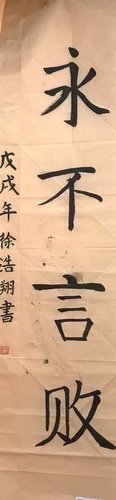 永不言败
戊戌年徐浩翔書